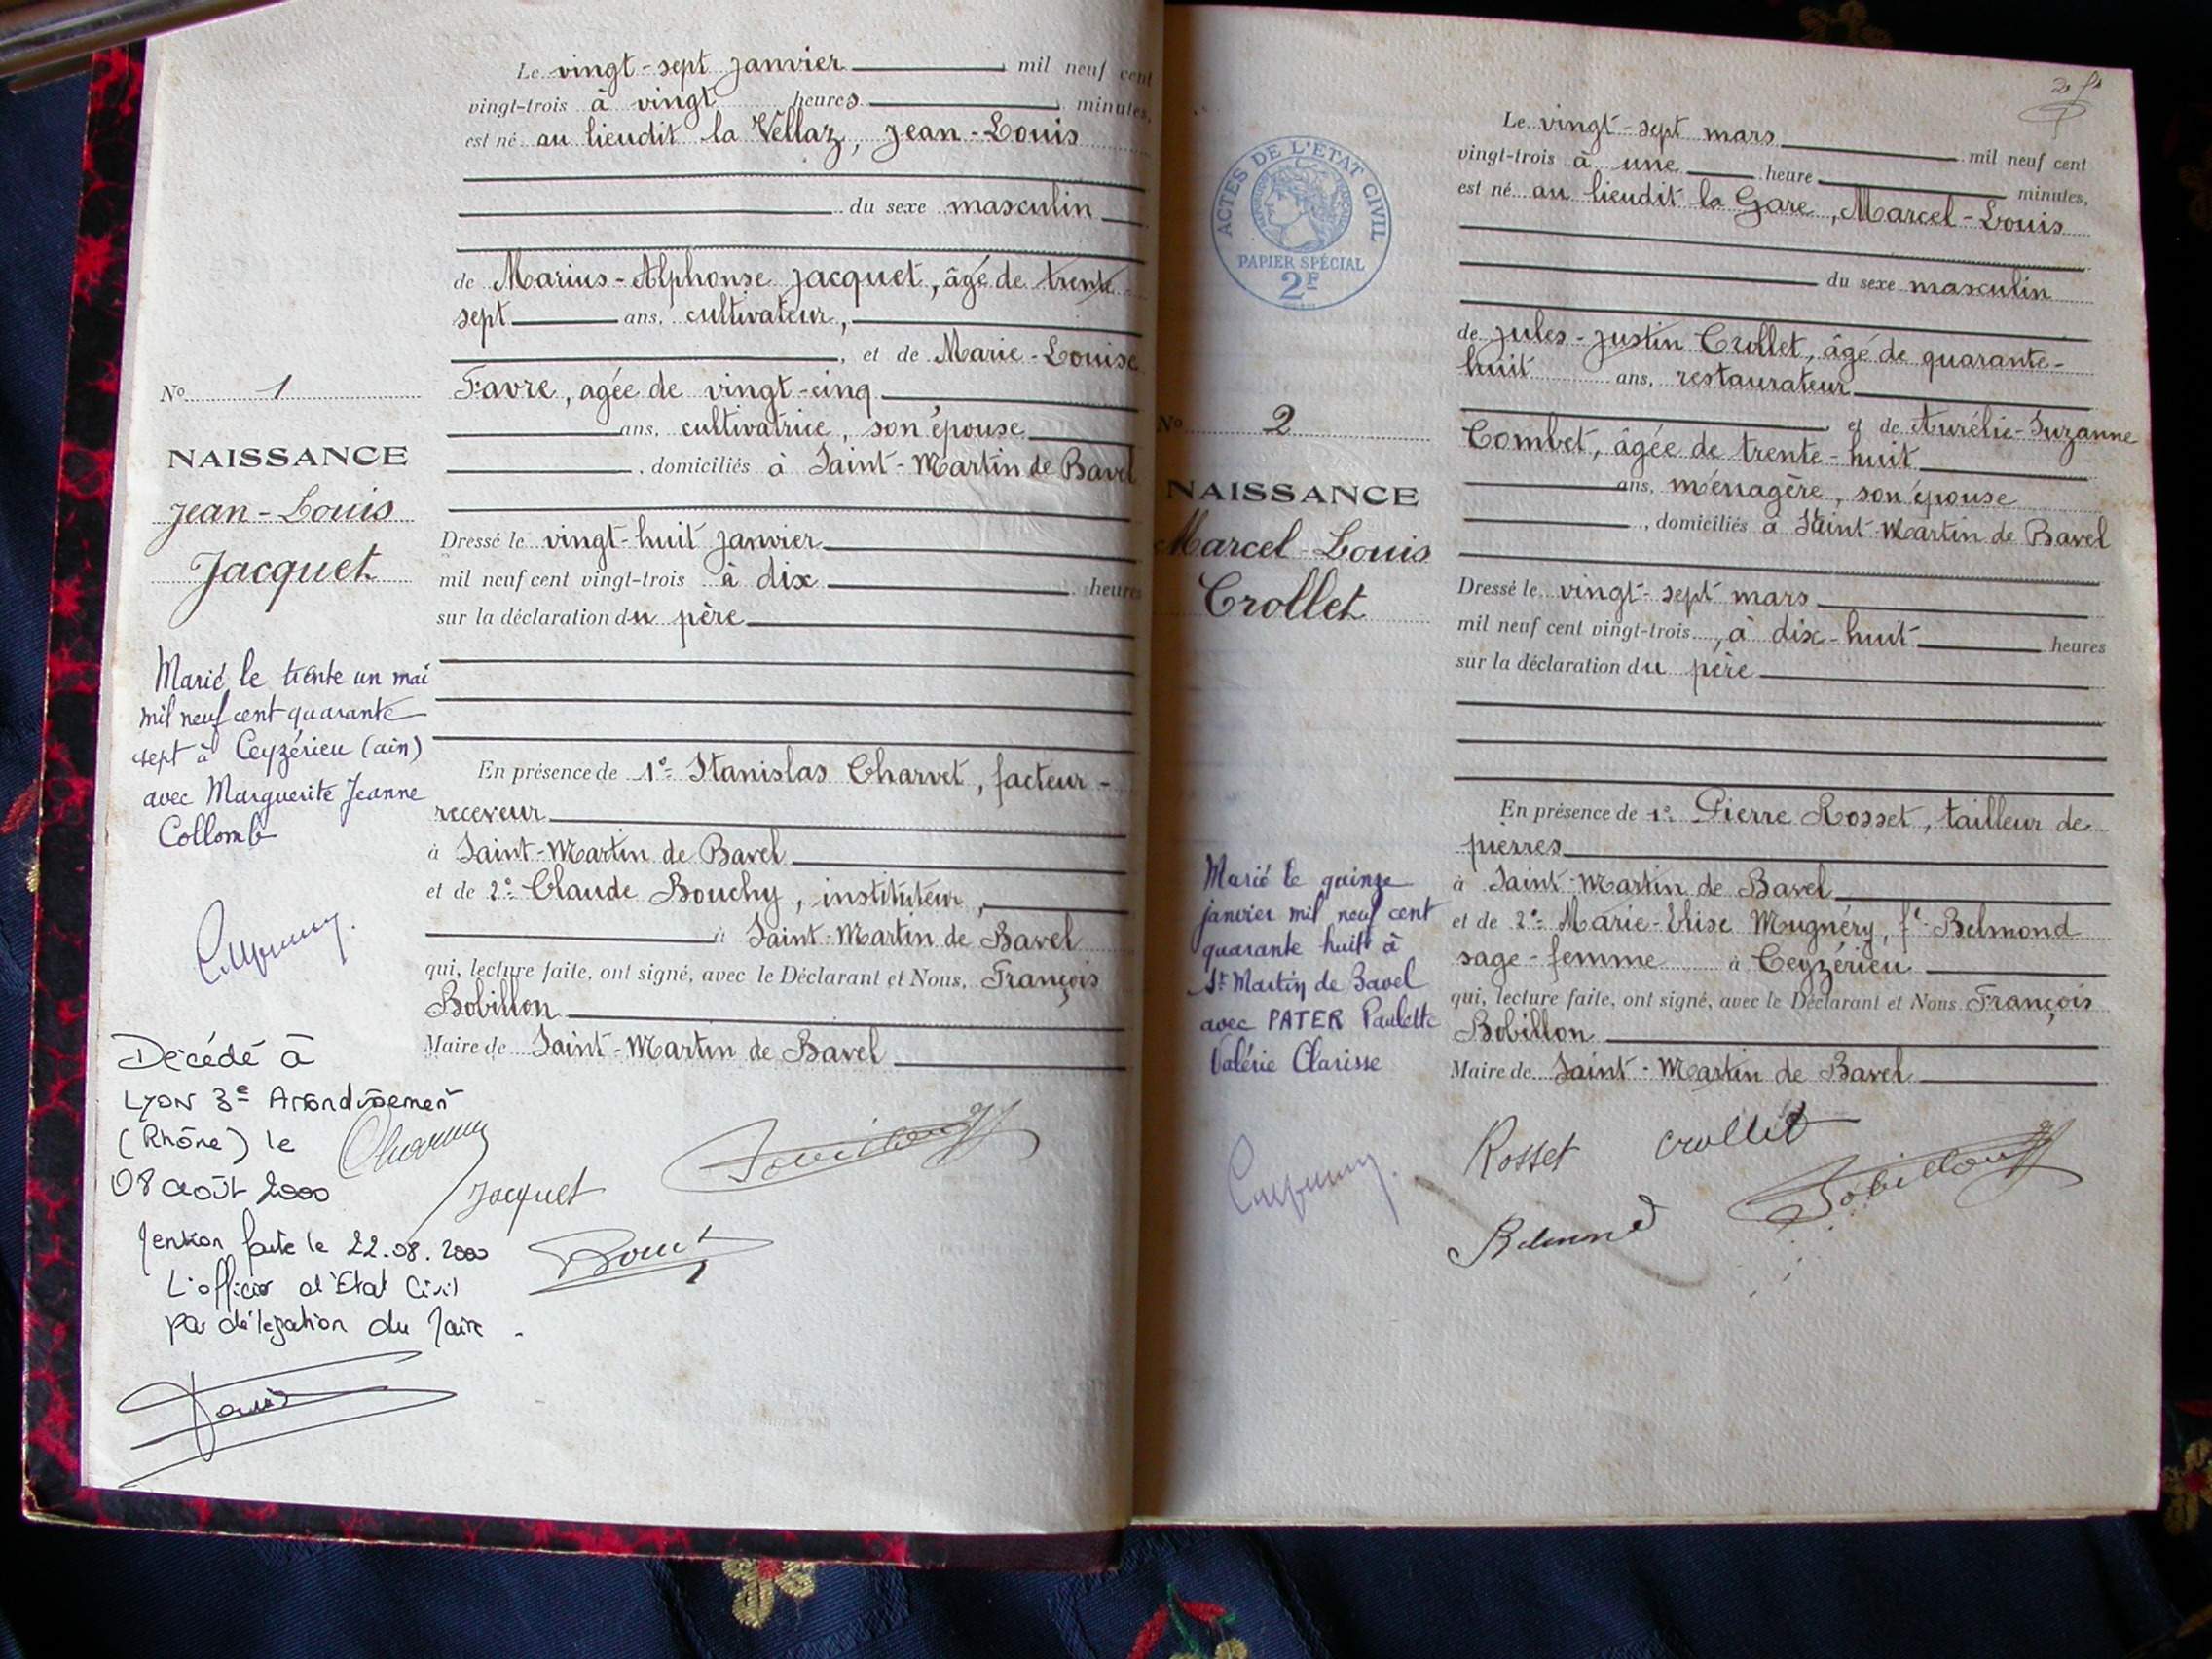 Le vingt-sept janvier mil neuf cent
vingt-trois à vingt heures minutes,
est né au lieudit la Vellaz, Jean-Louis
du sexe masculin
de Marius-Alphonse Jacquet, âgé de trente-
sept ans, cultivateur,
, et de Marie-Louise
Favre, agée de vingt-cinq
ans, cultivatrice, son épouse
, domiciliés à Saint-Martin de Bavel
Dressé le vingt-huit janvier
mil neuf cent vingt-trois à dix heures
sur la déclaration du père
En présence de 1° Stanislas Charvet, facteur-
receveur
à Saint-Martin de Bavel
et de 2° Claude Bouchy, instituteur,
à Saint-Martin de Bavel
qui, lecture faite, ont signé, avec le Déclarant et Nous, François
Bobillon
Maire de Saint-Martin de Bavel
No 1
NAISSANCE
Jean-Louis
Jacquet
Marié le trente un mai
mil neuf cent quarante
sept à Ceyzérieu (ain)
avec Marguerite Jeanne
Collomb
Décédé à
LYON 3e Arrondissement
(Rhône) le
08 août 2000
Mention faite le 22.08.2000
L'officier d'Etat Civil
par délégation du Maire.
Jacquet
ACTES DE L'ETAT CIVIL
PAPIER SPÉCIAL
2F
Le vingt-sept mars mil neuf cent
vingt-trois à une heure minutes,
est né au lieudit la Gare, Marcel-Louis
du sexe masculin
de Jules-Justin Crollet, âgé de quarante-
huit ans, restaurateur
et de Aurélie-Suzanne
Combet, âgée de trente-huit
ans, ménagère, son épouse
, domiciliés à Saint-Martin de Bavel
Dressé le vingt-sept mars
mil neuf cent vingt-trois, à dix-huit heures
sur la déclaration du père
En présence de 1° Pierre Rosset, tailleur de
pierres
à Saint-Martin de Bavel
et de 2° Marie-Elise Mugnéry, fe Belmond
sage-femme à Ceyzérieu
qui, lecture faite, ont signé, avec le Déclarant et Nous François
Bobillon
Maire de Saint-Martin de Bavel
No 2
NAISSANCE
Marcel-Louis
Crollet
Marié le quinze
janvier mil neuf cent
quarante huit à
St Martin de Bavel
avec PATER Paulette
Valérie Clarisse
Rosset Crollet
Belmond Bobillon